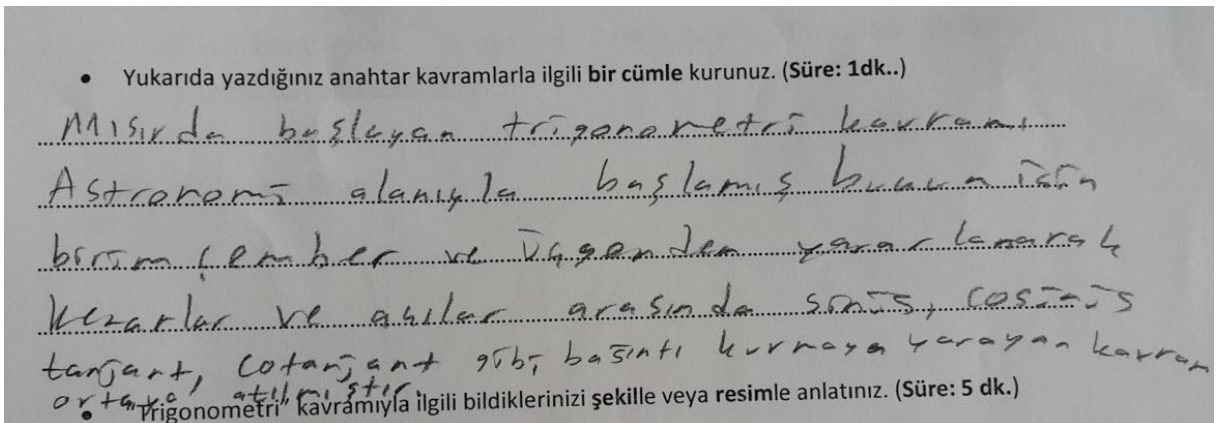 • Yukarıda yazdığınız anahtar kavramlarla ilgili bir cümle kurunuz. (Süre: 1dk..)
Mısırda başlayan trigonometri kavramı
Astronomi alanıyla başlamış bunun için
birim çember ve üçgenden yararlanarak
kenarlar ve açılar arasında sinüs, cosinüs
tanjant, cotanjant gibi bağıntı kurmaya yarayan kavram
ortaya atılmıştır.
• "Trigonometri" kavramıyla ilgili bildiklerinizi şekille veya resimle anlatınız. (Süre: 5 dk.)